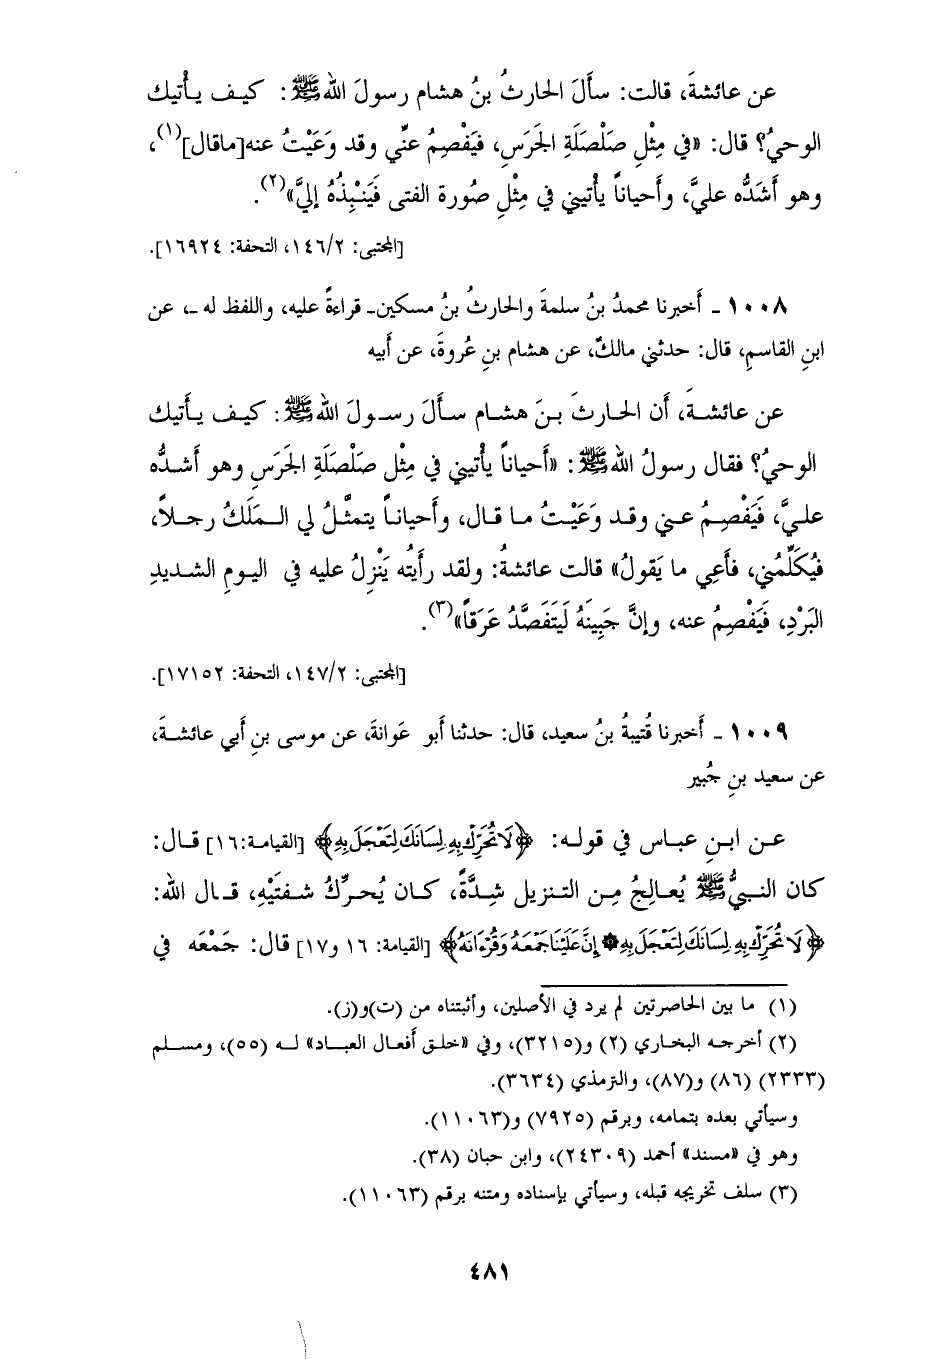 عن عائشةَ، قالت: سأَلَ الحارثُ بنُ هشام رسولَ الله ﷺ: كيف يأتيك
الوحيُ؟ قال: «في مِثْلِ صَلْصَلَةِ الجَرَسِ، فيَفْصِمُ عنِّي وقد وَعَيْتُ عنه[ماقال](١)،
وهو أشَدُّه عليَّ، وأحياناً يأْتيني في مِثْلِ صُورة الفتى فَيَنْبِذُهُ إليَّ»(٢).
[المجتبى: ١٤٦/٢، التحفة: ١٦٩٢٤].
١٠٠٨ ـ أَخبرنا محمدُ بنُ سلمةَ والحارثُ بنُ مسكين ـ قراءةً عليه، واللفظ له ـ، عن
ابنِ القاسمِ، قال: حدثني مالكٌ، عن هشام بنِ عُروةَ، عن أَبيه
عن عائشةَ، أن الحارثَ بنَ هشام سأَلَ رسولَ الله ﷺ: كيف يأتيك
الوحيُ؟ فقال رسولُ الله ﷺ: «أَحياناً يأْتيني في مِثْل صَلْصَلَةِ الجَرَسِ وهو أشدُّه
عليَّ، فَيَفْصِمُ عني وقد وَعَيْتُ ما قال، وأَحياناً يتمثَّلُ لي المَلَكُ رجلاً،
فيُكَلِّمُني، فأَعِي ما يَقولُ» قالت عائشةُ: ولقد رأيتُه يَنْزِلُ عليه في اليومِ الشديدِ
البَرْدِ، فَيَفْصِمُ عنه، وإنَّ جَبِينَهُ لَيَتَفَصَّدُ عَرَقاً»(٣).
[المجتبى: ١٤٧/٢، التحفة: ١٧١٥٢].
١٠٠٩ ـ أَخبرنا قُتيبةُ بنُ سعيد، قال: حدثنا أَبو عَوانةَ، عن موسى بنِ أَبي عائشةَ،
عن سعيد بنِ جُبير
عن ابنِ عباس في قوله: ﴿لَا تُحَرِّكْ بِهِ لِسَانَكَ لِتَعْجَلَ بِهِ﴾ [القيامة:١٦] قال:
كان النبيُّ ﷺ يُعالِجُ مِن التنزيل شِدَّةً، كان يُحرِّكُ شفتَيْهِ، قال الله:
﴿لَا تُحَرِّكْ بِهِ لِسَانَكَ لِتَعْجَلَ بِهِ ۞ إِنَّ عَلَيْنَا جَمْعَهُ وَقُرْءَانَهُ﴾ [القيامة: ١٦ و١٧] قال: جَمْعَه في
(١) ما بين الحاصرتين لم يرد في الأصلين، وأثبتناه من (ت)و(ز).
(٢) أخرجه البخاري (٢) و(٣٢١٥)، وفي «خلق أفعال العباد» له (٥٥)، ومسلم
(٢٣٣٣) (٨٦) و(٨٧)، والترمذي (٣٦٣٤).
وسيأتي بعده بتمامه، وبرقم (٧٩٢٥) و(١١٠٦٣).
وهو في «مسند» أحمد (٢٤٣٠٩)، وابن حبان (٣٨).
(٣) سلف تخريجه قبله، وسيأتي بإسناده ومتنه برقم (١١٠٦٣).
٤٨١